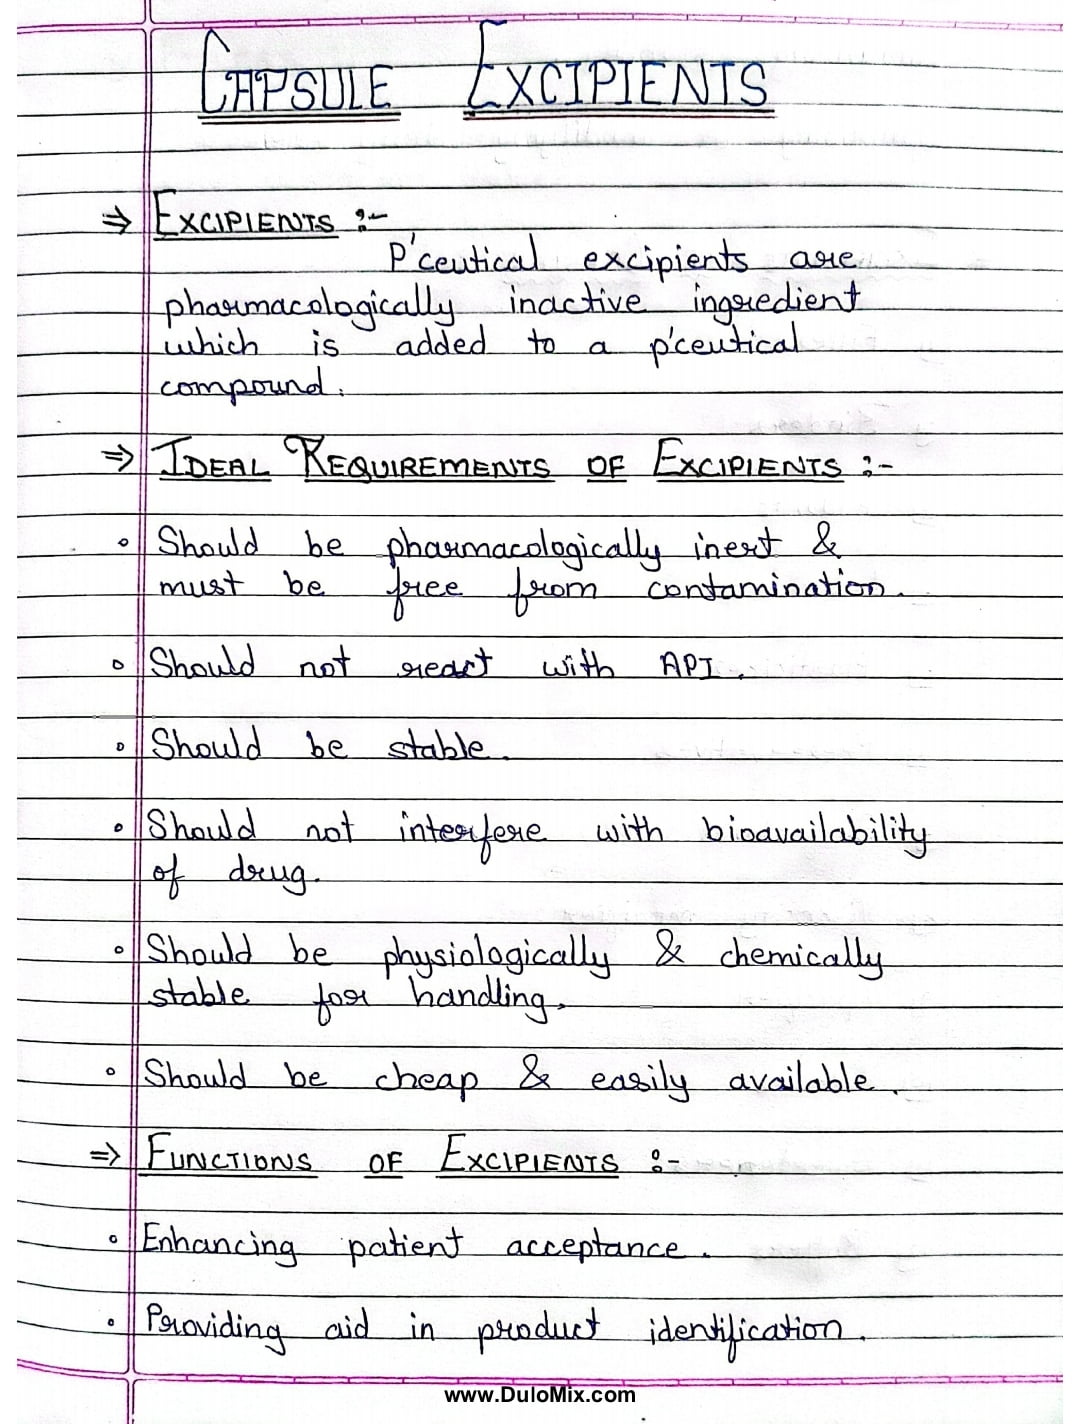 CAPSULE EXCIPIENTS
⇒ EXCIPIENTS :-
P'ceutical excipients are
pharmacologically inactive ingredient
which is added to a p'ceutical
compound.
⇒ IDEAL REQUIREMENTS OF EXCIPIENTS :-
∘ Should be pharmacologically inert &
must be free from contamination.
∘ Should not react with API.
∘ Should be stable.
∘ Should not interfere with bioavailability
of drug.
∘ Should be physiologically & chemically
stable for handling.
∘ Should be cheap & easily available.
⇒ FUNCTIONS OF EXCIPIENTS :-
∘ Enhancing patient acceptance.
∘ Providing aid in product identification.
www.DuloMix.com